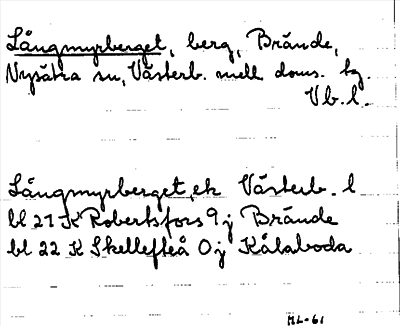 Långmyrberget, berg, Brände,
Nysätra sn, Västerb. mell. doms. bg.
Vb. l.
Långmyrberget, ek Västerb. l
bl 21 K Robertsfors 9 j Brände
bl 22 K Skellefteå 0 j Kålaboda
ML-61